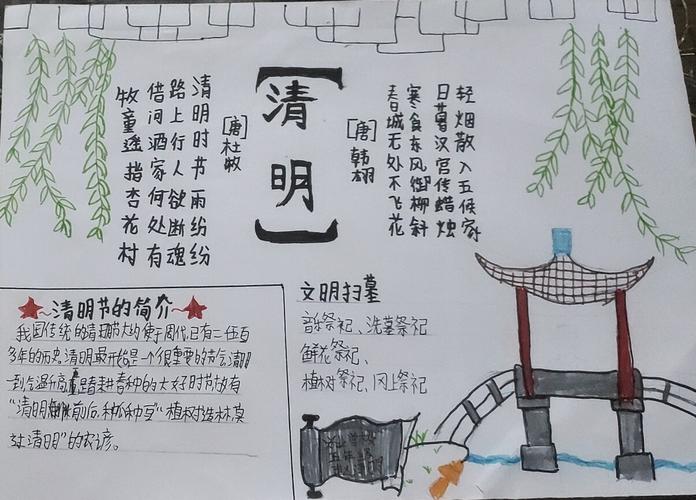 清明
[唐]杜牧
清明时节雨纷纷
路上行人欲断魂
借问酒家何处有
牧童遥指杏花村
[唐]韩
春城无处不飞花
寒食东风御柳斜
日暮汉宫传蜡烛
轻烟散入五侯家
清明节的简介
我国传统的清明节大约始于周代,已有二千五百
多年的历史,清明最开始是一个很重要的节气,清明
一到气温升高,春耕春种的大好时节,故有
“清明前后,种瓜种豆”“植树造林,莫
过清明”的农谚。
文明扫墓
音乐祭祀、洗墓祭祀
鲜花祭祀、
植树祭祀、网上祭祀